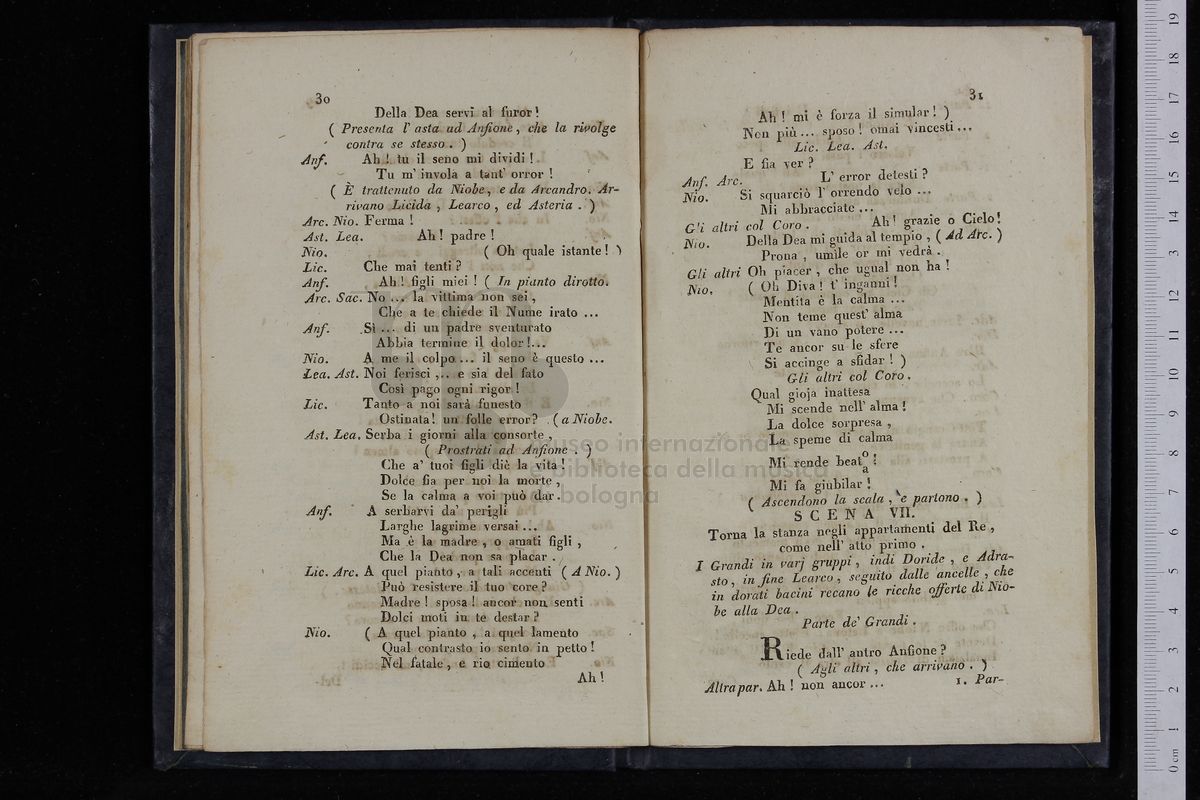 30
Della Dea servi al furor!
( Presenta l' asta ad Anfione, che la rivolge
contra se stesso . )
Anf. Ah! tu il seno mi dividi!
Tu m' invola a tant' orror !
( È trattenuto da Niobe, e da Arcandro. Ar-
rivano Licida , Learco , ed Asteria . )
Arc. Nio. Ferma !
Ast. Lea. Ah! padre !
Nio. ( Oh quale istante! )
Lic. Che mai tenti ?
Anf. Ah! figli miei ! ( In pianto dirotto.
Arc. Sac. No ... la vittima non sei ,
Che a te chiede il Nume irato ...
Anf. Sì ... di un padre sventurato
Abbia termine il dolor!...
Nio. A me il colpo ... il seno è questo ...
Lea. Ast. Noi ferisci ,.. e sia del fato
Così pago ogni rigor !
Lic. Tanto a noi sarà funesto
Ostinata! un folle error? ( a Niobe.
Ast. Lea. Serba i giorni alla consorte ,
( Prostrati ad Anfione . )
Che a' tuoi figli diè la vita!
Dolce fia per noi la morte ,
Se la calma a voi può dar.
Anf. A serbarvi da' perigli
Larghe lagrime versai ...
Ma è la madre , o amati figli ,
Che la Dea non sa placar .
Lic. Arc. A quel pianto , a tali accenti ( A Nio. )
Può resistere il tuo core ?
Madre ! sposa ! ancor non senti
Dolci moti in te destar ?
Nio. ( A quel pianto , a quel lamento
Qual contrasto io sento in petto !
Nel fatale , e rio cimento
Ah !
31
Ah ! mi è forza il simular ! )
Non più ... sposo ! omai vincesti ...
Lic. Lea. Ast.
E fia ver ?
Anf. Arc. L' error detesti ?
Nio. Si squarciò l' orrendo velo ...
Mi abbracciate ...
Gli altri col Coro . Ah! grazie o Cielo!
Nio. Della Dea mi guida al tempio , ( Ad Arc. )
Prona , umile or mi vedrà .
Gli altri Oh piacer , che ugual non ha !
Nio. ( Oh Diva ! t' inganni !
Mentita è la calma ...
Non teme quest' alma
Di un vano potere ...
Te ancor su le sfere
Si accinge a sfidar ! )
Gli altri col Coro.
Qual gioja inattesa
Mi scende nell' alma !
La dolce sorpresa ,
La speme di calma
Mi rende beat o/a !
Mi fa giubilar !
( Ascendono la scala , e partono . )
SCENA VII.
Torna la stanza negli appartamenti del Re ,
come nell' atto primo .
I Grandi in varj gruppi , indi Doride , e Adra-
sto , in fine Learco , seguito dalle ancelle , che
in dorati bacini recano le ricche offerte di Nio-
be alla Dea .
Parte de' Grandi .
Riede dall' antro Anfione ?
( Agli altri , che arrivano . )
Altra par. Ah ! non ancor ...
1. Par-
museo internazionale
e biblioteca della musica
bologna